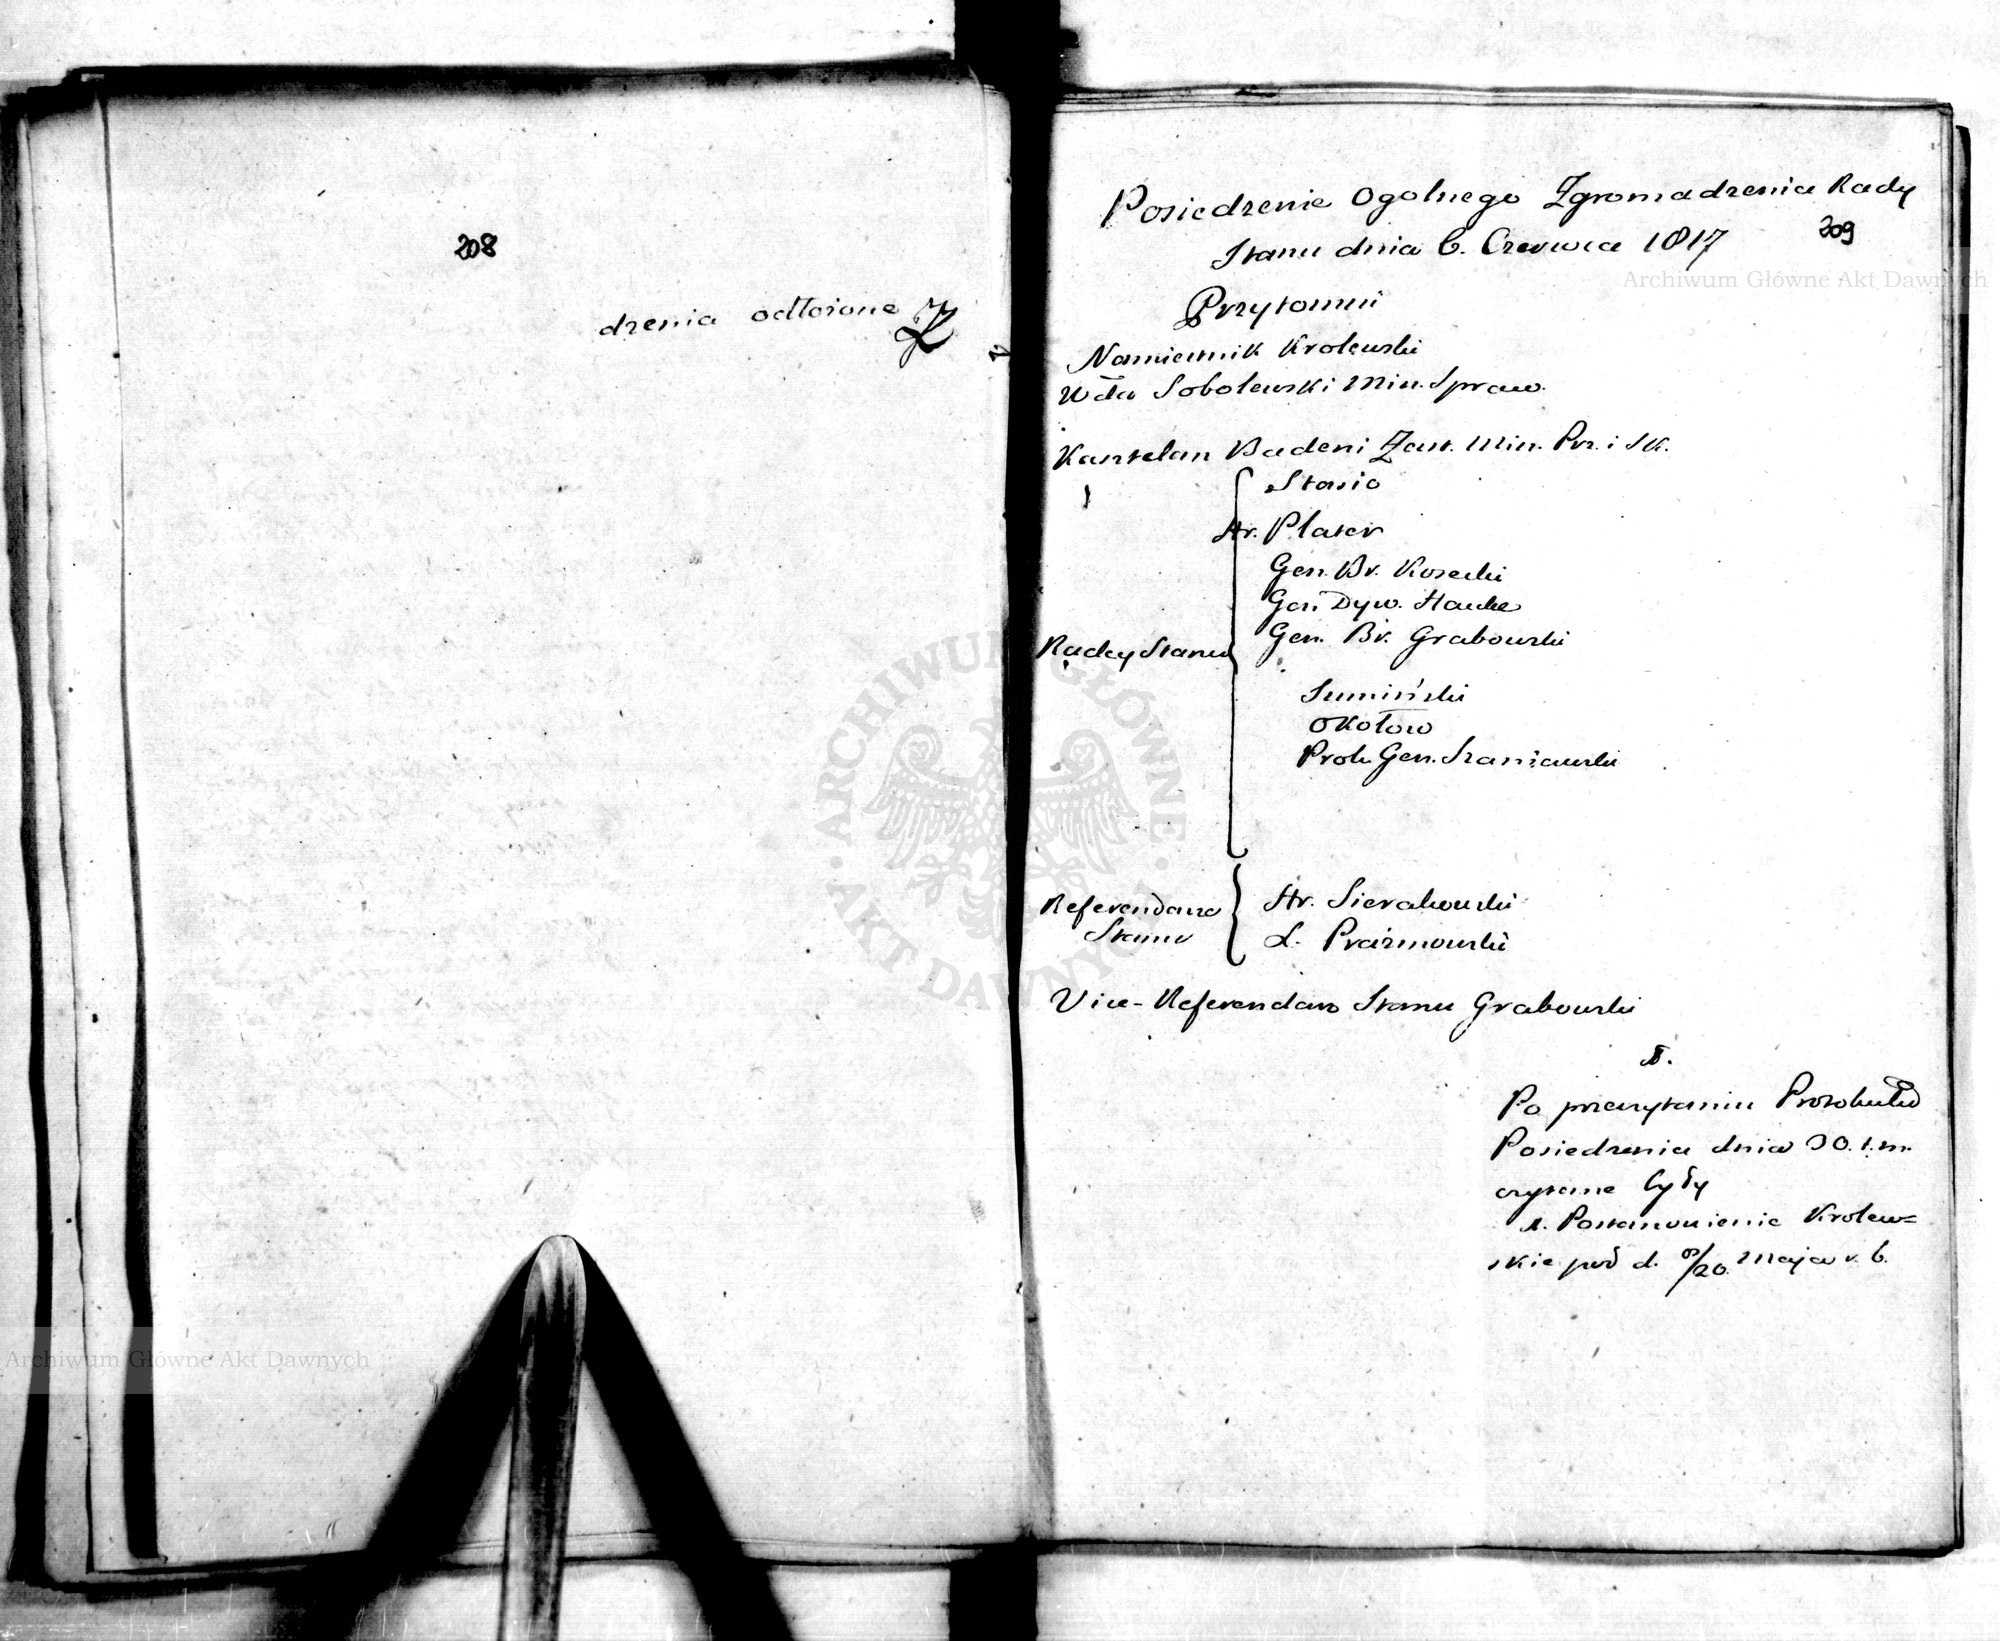 208
drzenia odłożone
Posiedzenie Ogolnego Zgromadzenia Rady
Stanu dnia 6. Czerwca 1817
209
Archiwum Główne Akt Dawnych
Przytomni
Namiestnik Krolewski
Wda Sobolewski Min. Spraw.
Kasztelan Badeni Zast. Min. Prz. i Sk.
Stasic
Hr. Plater
Gen. Br. Kosecki
Gen Dyw. Hauke
Gen. Br. Grabowski
Radcy Stanu
Sumiński
Okołow
Prok. Gen. Szaniawski
Referendarze
Stanu
Hr. Sierakowski
X. Prażmowski
Vice-Referendarz Stanu Grabowski
1.
Po przeczytaniu Protokułu
Posiedzenia dnia 30. z. m.
czytane były
1. Postanowienie Krolew=
skie pod d. 8/20. Maja r. b.
ARCHIWUM GŁÓWNE
AKT DAWNYCH
Archiwum Główne Akt Dawnych